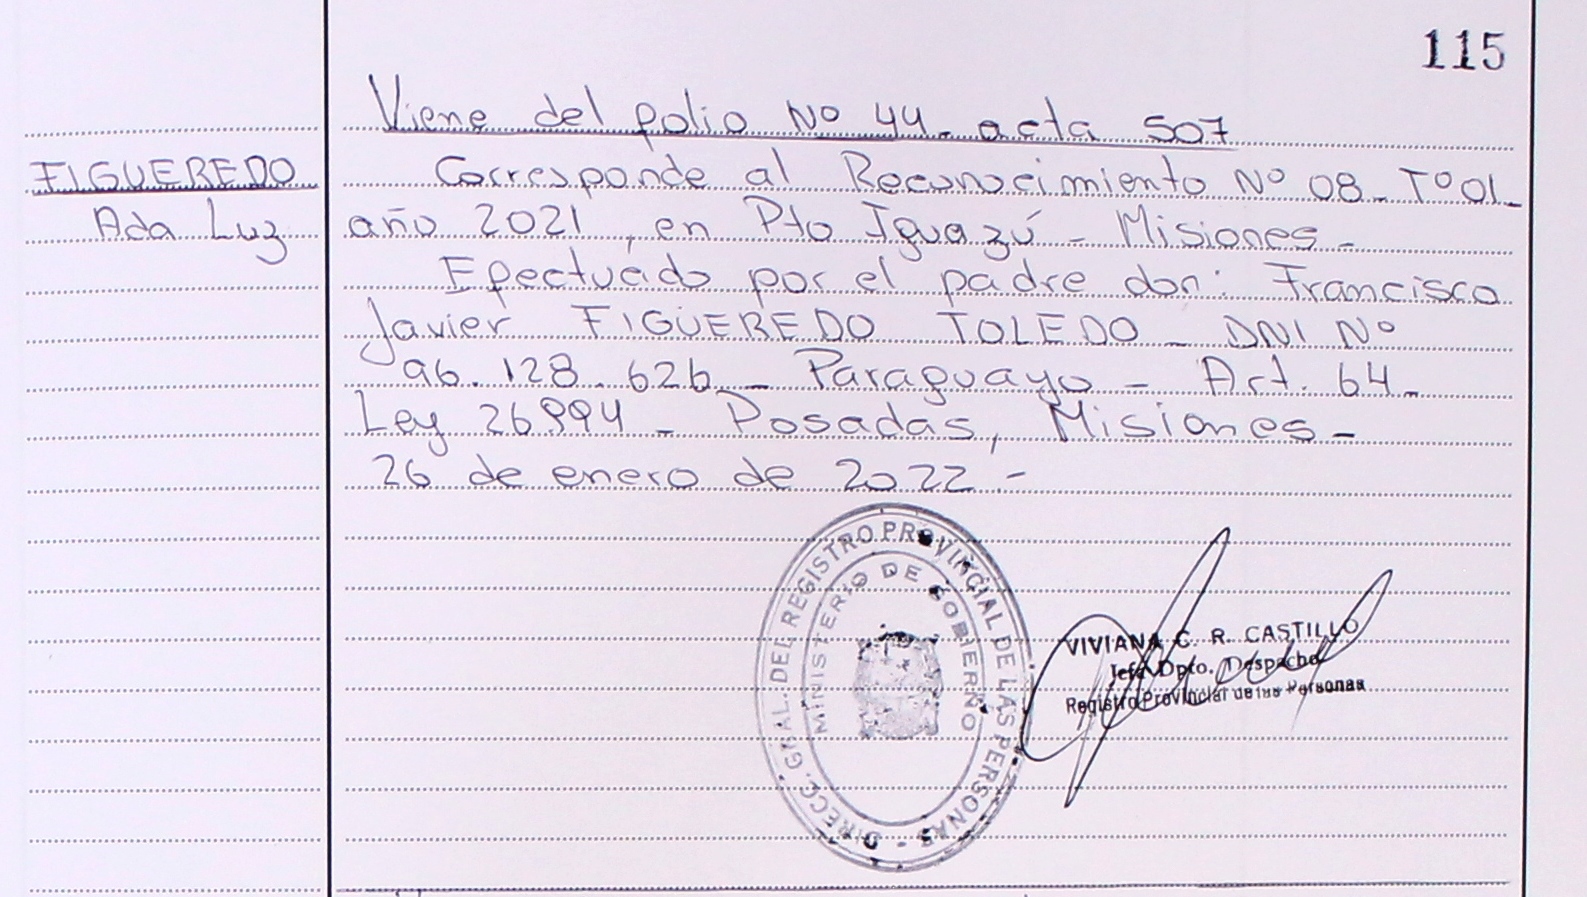 115
Viene del folio Nº 44. acta 507
FIGUEREDO
Ada Luz
Corresponde al Reconocimiento Nº 08 - Tº 01 -
año 2021, en Pto Iguazú - Misiones -
Efectuado por el padre don: Francisco
Javier FIGUEREDO TOLEDO - DNI Nº
96.128.626 - Paraguayo - Art. 64 -
Ley 26.994 - Posadas, Misiones -
26 de enero de 2022.-
DIRECC. GRAL. DEL REGISTRO PROVINCIAL DE LAS PERSONAS -
MINISTERIO DE GOBIERNO
VIVIANA C. R. CASTILLO
Jefa Dpto. Despacho
Registro Provincial de las Personas